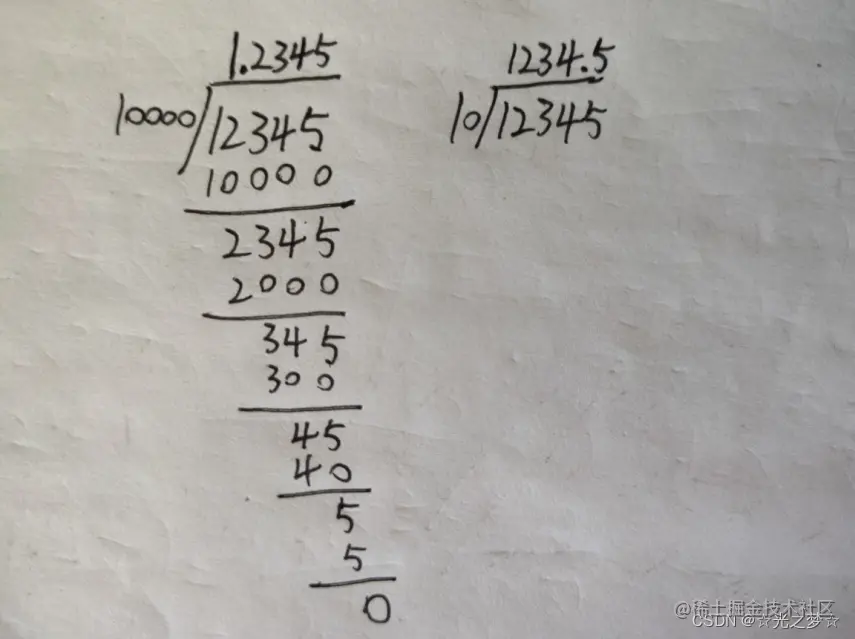 1.2345
10000/12345
10000
2345
2000
345
300
45
40
5
5
0
1234.5
10/12345
@稀土掘金技术社区
CSDN @☆光之梦☆